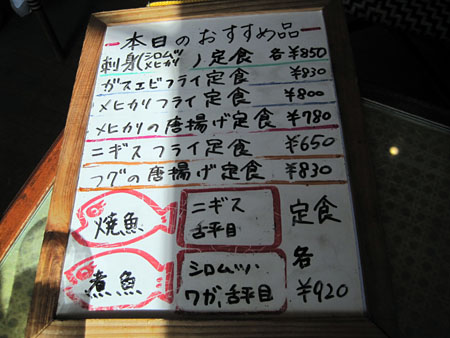 本日のおすすめ品
刺身(シロムツ メヒカリ)定食 各¥850
ガスエビフライ定食 ¥830
メヒカリフライ定食 ¥800
メヒカリの唐揚げ定食 ¥780
ニギスフライ定食 ¥650
フグの唐揚げ定食 ¥830
焼魚 ニギス 舌平目
煮魚 シロムツ、ワガ、舌平目
定食 各 ¥920